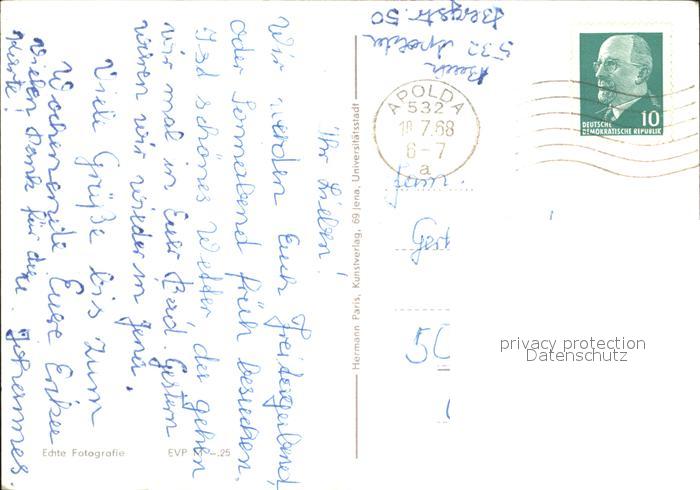 Ihr Lieben!
Wir werden Euch Freitagabend,
oder Sonnabend früh besuchen.
Ist schönes Wetter, da gehen
wir mal in Euer Bad. Gestern
waren wir wieder in Jena.
Viele Grüße bis zum
Wochenende Eure Enkel
vielen Dank für die Johannes.
Karte!
Echte Fotografie
EVP -.25
Hermann Paris, Kunstverlag, 69 Jena, Universitätsstadt
532 Apolda
Bergstr. 50
APOLDA
532
18.7.68
6-7
a
DEUTSCHE
DEMOKRATISCHE REPUBLIK
10
privacy protection
Datenschutz